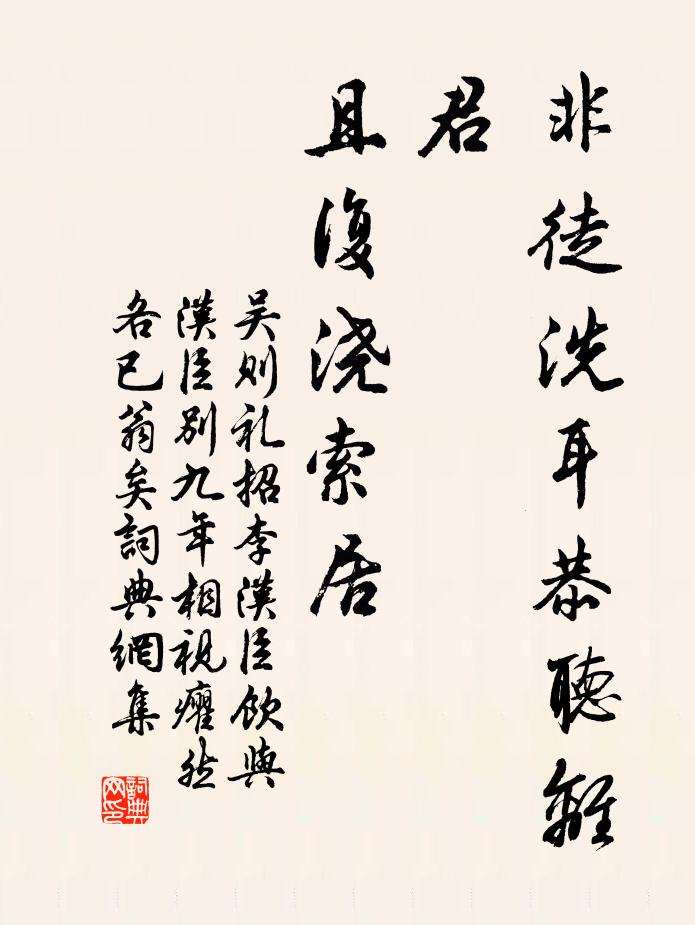 非徒洗耳恭聽離
君
且復澆索居
吴则礼招李漢臣飲與
漢臣别九年相視癯然
各已翁矣詞典網集
詞典
网印